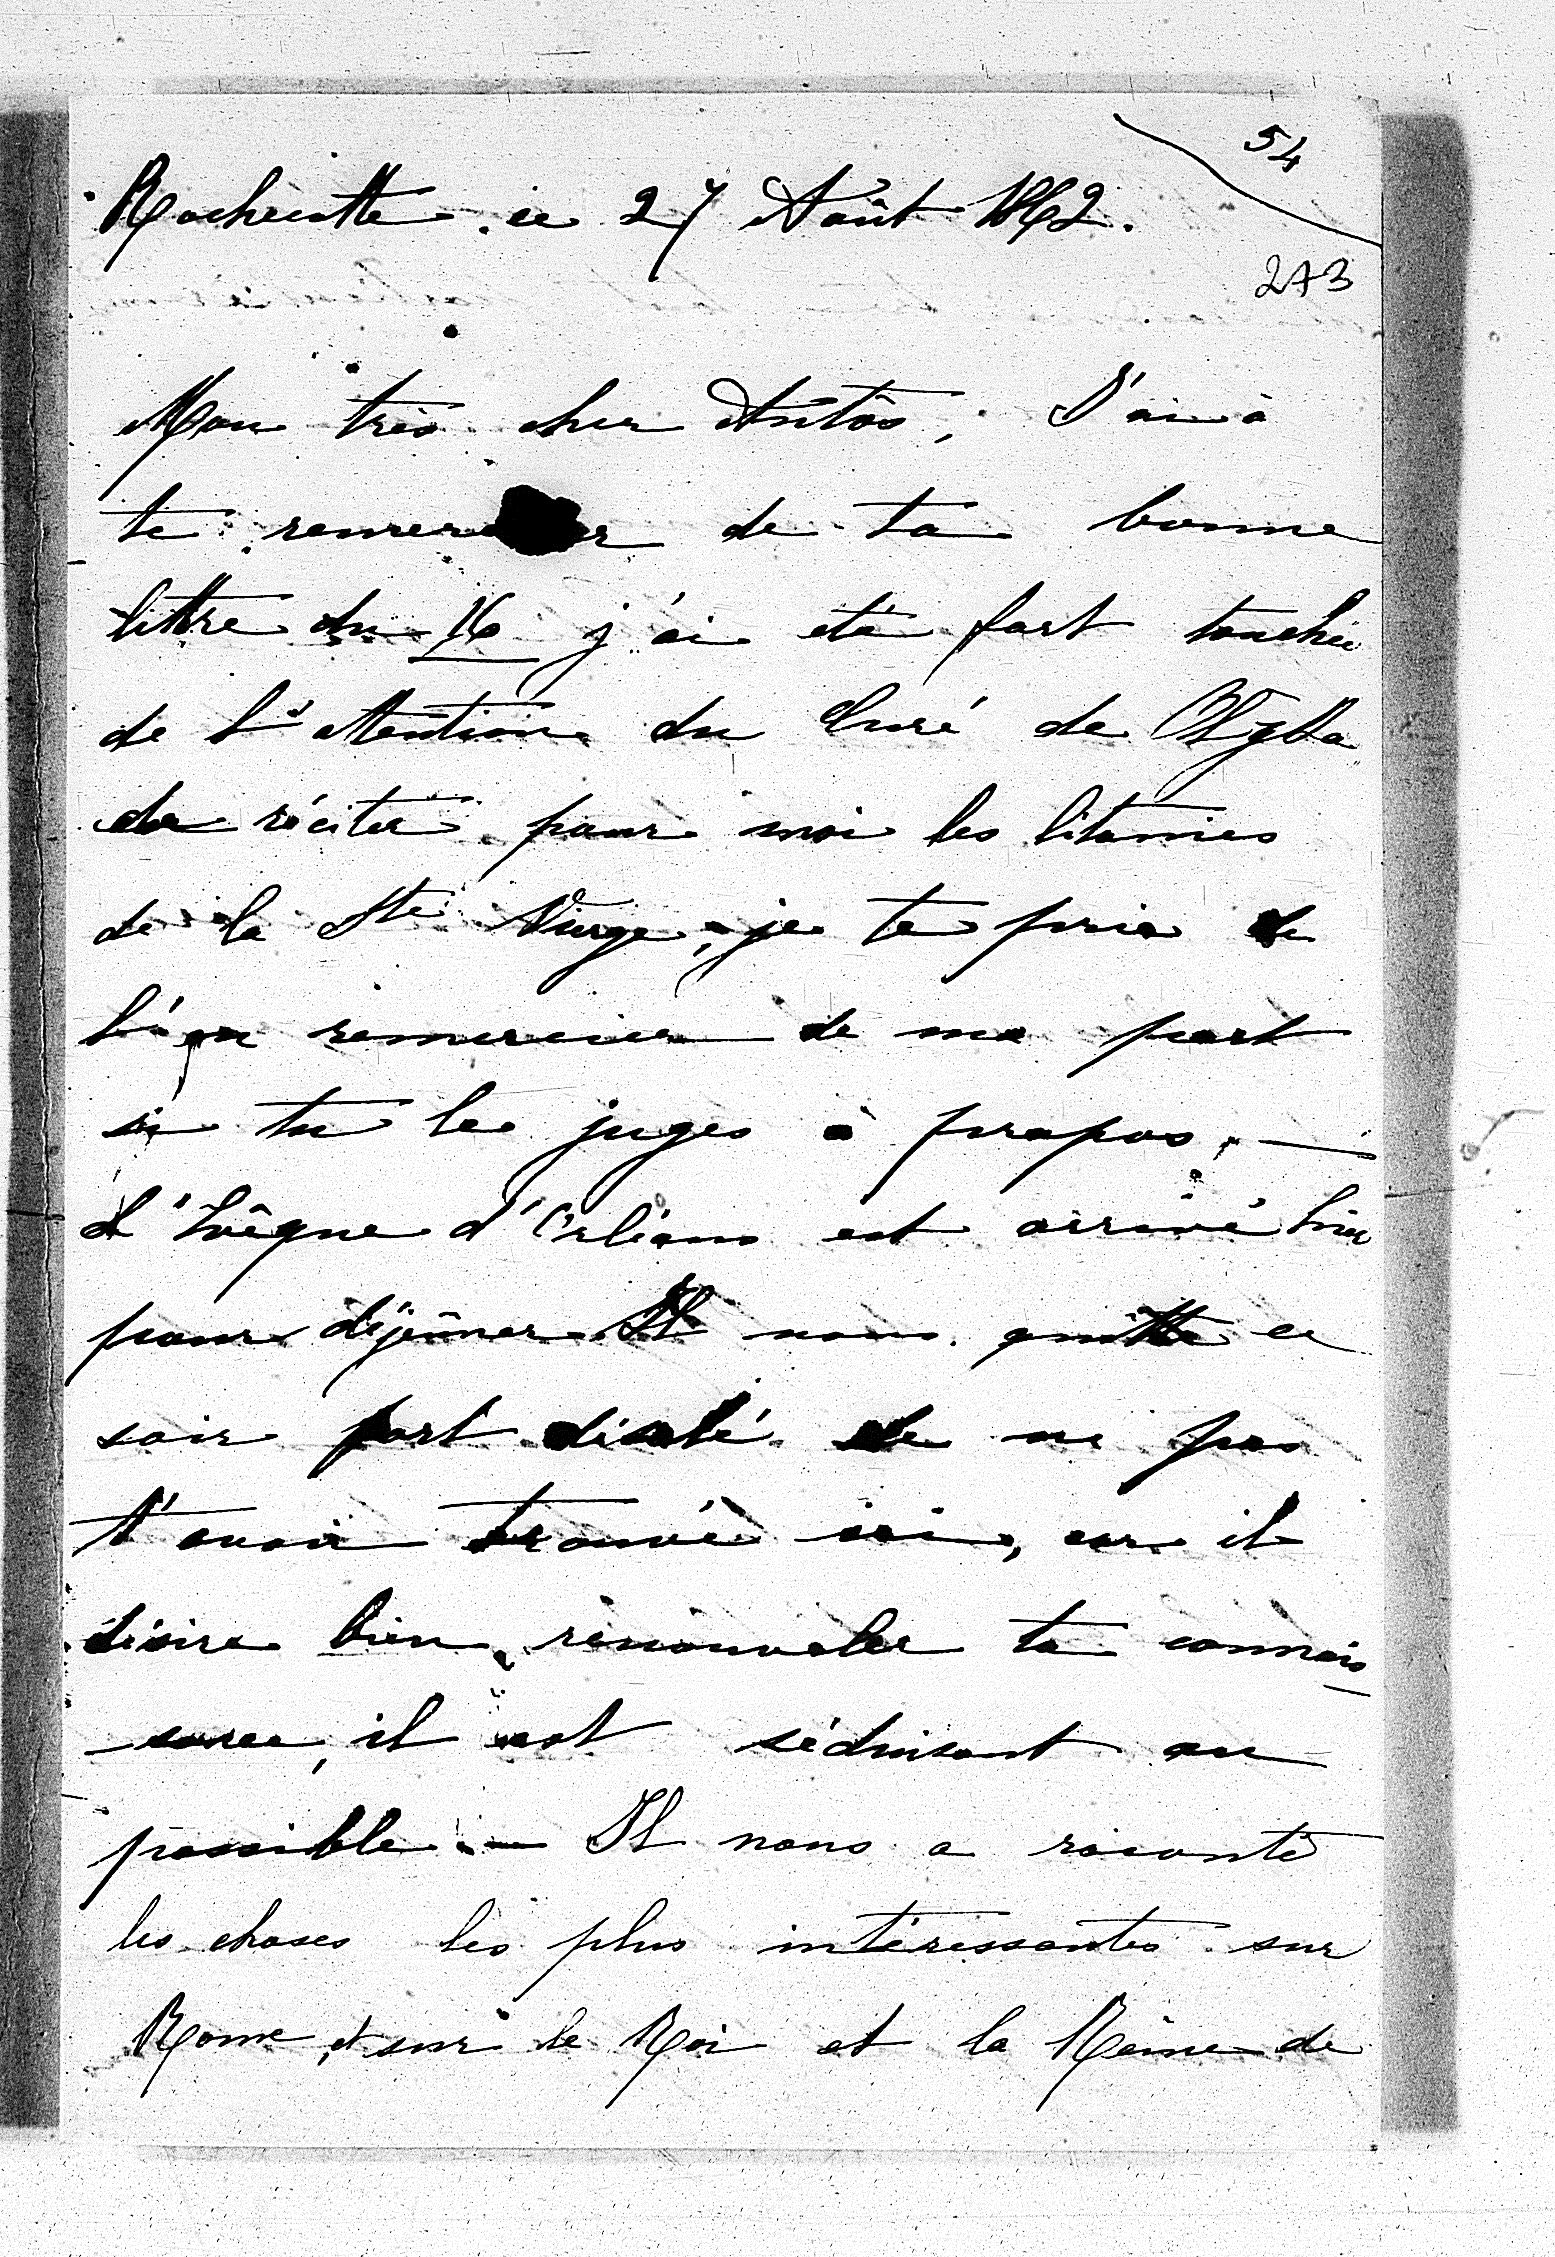 54
Rochecotte. ce 27 Août 1862.
273
Mon très cher Antôs, J'ai à
te remercier de ta bonne
lettre du 16 j'ai été fort touchée
de l'attention du Curé de
de réciter pour moi les litanies
de la Ste Vierge, je te prie de
l'en remercier de ma part
si tu le juges à propos. —
L'Evêque d'Orléans est arrivé hier
pour déjeûner Il nous quitte ce
soir fort désolé de ne pas
t'avoir trouvé ici, car il
désire bien renouveler ta connais
-sance, il est séduisant au
possible. — Il nous a raconté
les choses les plus intéressantes sur
Rome, et sur le Roi et la Reine de